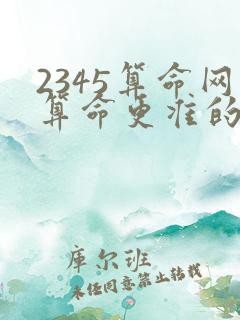 2345算命网
算命更准的
库尔班
未经同意禁止转载